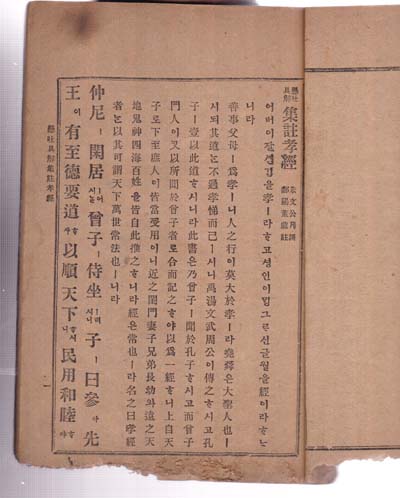 懸吐具解 集註孝經 朱文公刊誤 鄱陽董鼎註
어버이잘셤김을孝ㅣ라ᄒᆞ고셩인이밍그르신글월을經이라ᄒᆞᄂᆞ
니라
善事父母ㅣ爲孝ㅣ니人之行이莫大於孝ㅣ라堯舜은大聖人也ㅣ
시되其道는不過孝悌而已ㅣ시니禹湯文武周公이傳之ᄒᆞ시고孔
子ㅣ壹以此道ᄒᆞ시니라此書는乃曾子ㅣ聞於孔子ᄒᆞ시고而曾子
門人이又以所聞於曾子者로合而記之ᄒᆞ야以爲一經ᄒᆞ니上自天
子로下至庶人이皆當受用이니近之閨門妻子兄弟長幼와遠之天
地鬼神四海百姓을皆自此推之ᄒᆞ니라經은常也ㅣ라名之曰孝經
者는以其可謂天下萬世常法也ㅣ니라
仲尼ㅣ閒居ㅣ어시늘曾子ㅣ侍坐ㅣ러시니子ㅣ曰參아先
王이有至德要道ᄒᆞ사以順天下ᄒᆞ시니民用和睦ᄒᆞ야
懸吐具解集註孝經 一